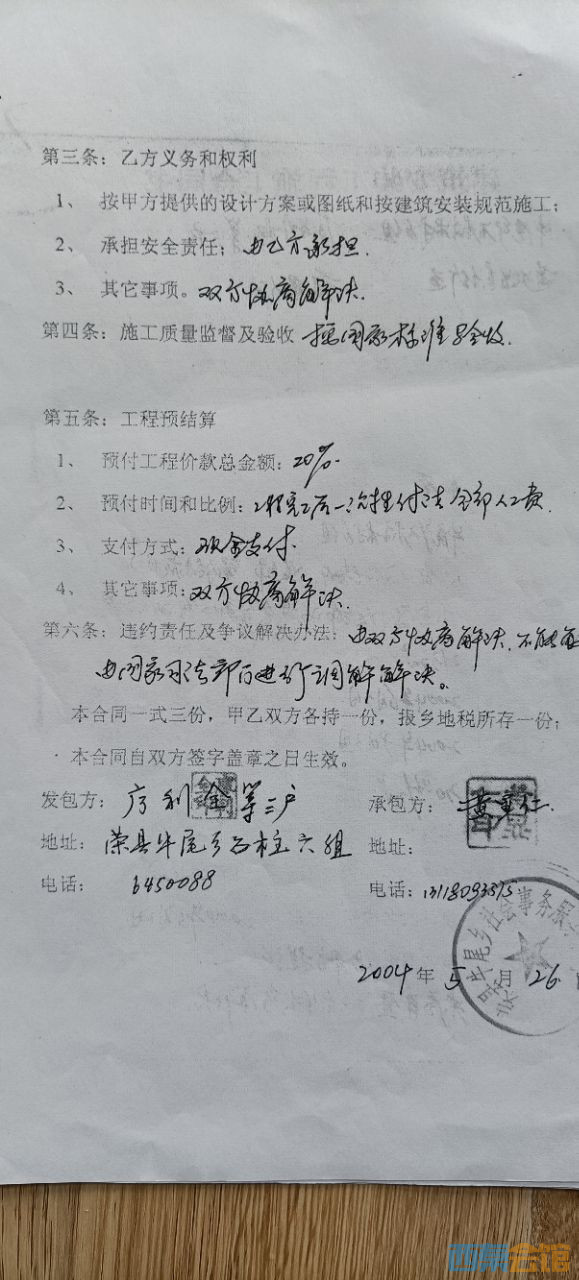 第三条：乙方义务和权利
1、 按甲方提供的设计方案或图纸和按建筑安装规范施工；
2、 承担安全责任；由乙方承担.
3、 其它事项。双方协商解决.
第四条：施工质量监督及验收 按国家标准验收.
第五条：工程预结算
1、 预付工程价款总金额：20%.
2、 预付时间和比例：工程完工后一次性付清全部人工费.
3、 支付方式：现金支付.
4、 其它事项：双方协商解决.
第六条：违约责任及争议解决办法：由双方协商解决.不能
由国家司法部门进行调解解决。
本合同一式三份，甲乙双方各持一份，报乡地税所存一份；
本合同自双方签字盖章之日生效。
发包方： 利金等三户
承包方：
地址： 荣县牛尾乡石柱六组
地址：
电话： 6450088
电话：
牛尾乡社会事务服
2004年5月26